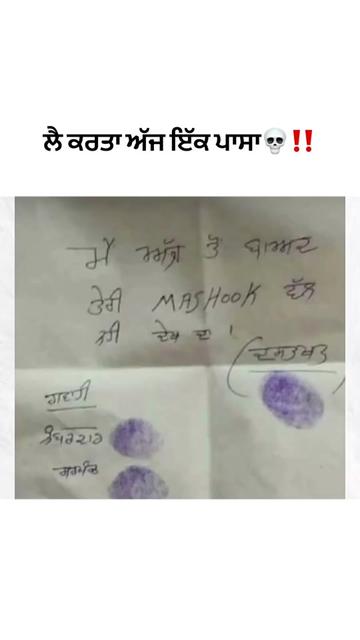 ਲੈ ਕਰਤਾ ਅੱਜ ਇੱਕ ਪਾਸਾ💀‼️
ਮੈਂ ਅੱਜ ਤੋਂ ਬਾਅਦ
ਤੇਰੀ MASHOOK ਵੱਲ
ਨਹੀ ਦੇਖ ਦਾ।
(ਦਸਤਖਤ)
ਗਵਾਹੀ
ਨੰਬਰਦਾਰ
ਸਰਪੰਚ